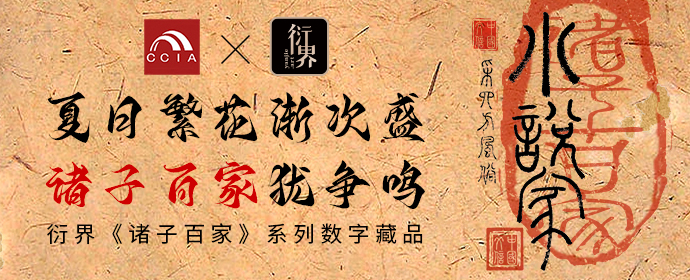 CCIA
衍界
yanjie art
夏日繁花渐次盛
诸子百家犹争鸣
衍界《诸子百家》系列数字藏品
小說家
诸子百家